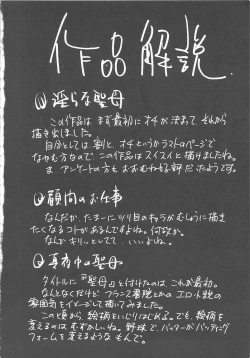 作品解説
① 淫らな聖母
この作品は、まず最初にオチが決まって、それから
描き出しました。
自分としては割と、オチというかラストのページで
なやむ方なので、この作品はスイスイと描けましたね。
ま、アンケートの方もおおむね好評だったようです。
② 顧問のお仕事
なんだか、たまーにツリ目のキャラがむしょうに描き
たくなるコトがあるんですよね。何故か。
なんか キリッとしてて…いいよね。
③ 真夜中の聖母
タイトルに『聖母』と付けたのは、これが最初。
なんとなくだけど フランス書院とかの エロ小説の
雰囲気をイメージして描いてみました。
この頃から、絵柄をいじりはじめる。でも、絵柄を
変えるのは むずかしいね。野球で バッターがバッティング
フォームを変えるような もんで。